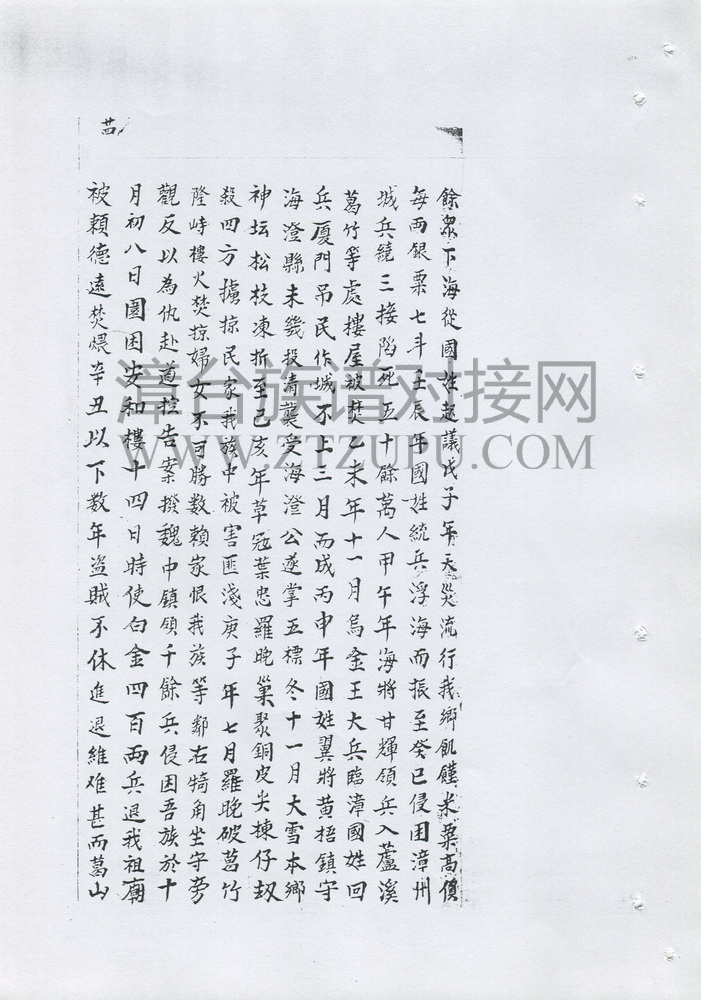 茁
餘衆下海從國姓起議戊子年天災流行我鄉飢饉米粟高價
每兩銀粟七斗壬辰年國姓統兵浮海而振至癸巳侵困漳州
城兵繞三接陷死五十餘萬人甲午年海將甘輝領兵入蘆溪
葛竹等處樓屋被焚乙未年十一月烏金王大兵臨漳國姓回
兵厦門吊民作城不上三月而成丙申年國姓翼將黄梧鎮守
海澄縣未幾投清襲受海澄公遂掌五標冬十一月大雪本鄉
神坛松枝凍折至己亥年草冦葉忠羅晚巢聚銅皮尖棟仔刼
殺四方擄掠民家我族中被害匪淺庚子年七月羅晚破葛竹
隆峙樓火焚掠婦女不可勝數賴家恨我族等鄰右犄角坐守旁
觀反以為仇赴道控告案撥魏中鎮領千餘兵侵困吾族於十
月初八日圍困安和樓十四日時使白金四百兩兵退我祖廟
被賴德遠焚煨辛丑以下数年盗賊不休進退維难甚而葛山
漳台族谱对接网
WWW.ZTZUPU.COM